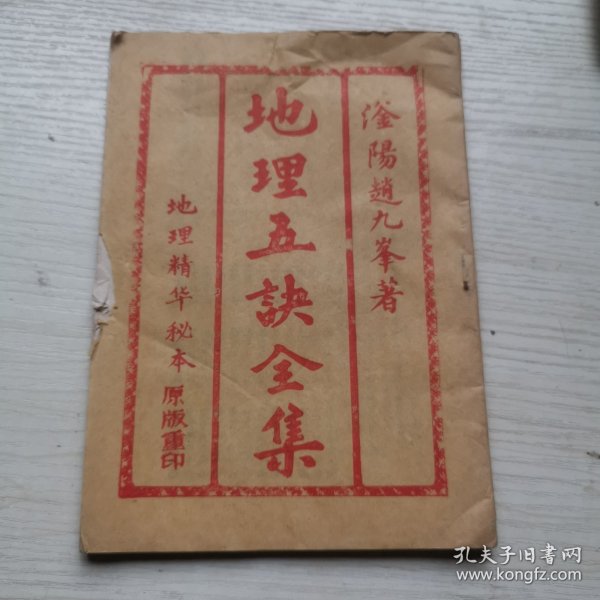 滏陽趙九峯著
地理五訣全集
地理精华秘本 原版重印
孔夫子旧书网
www.kongfz.com